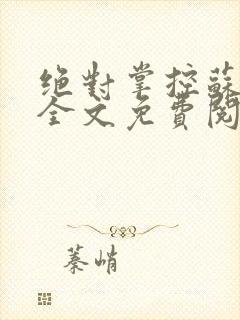 绝對掌控蘇
全文免費閱
蓁峭